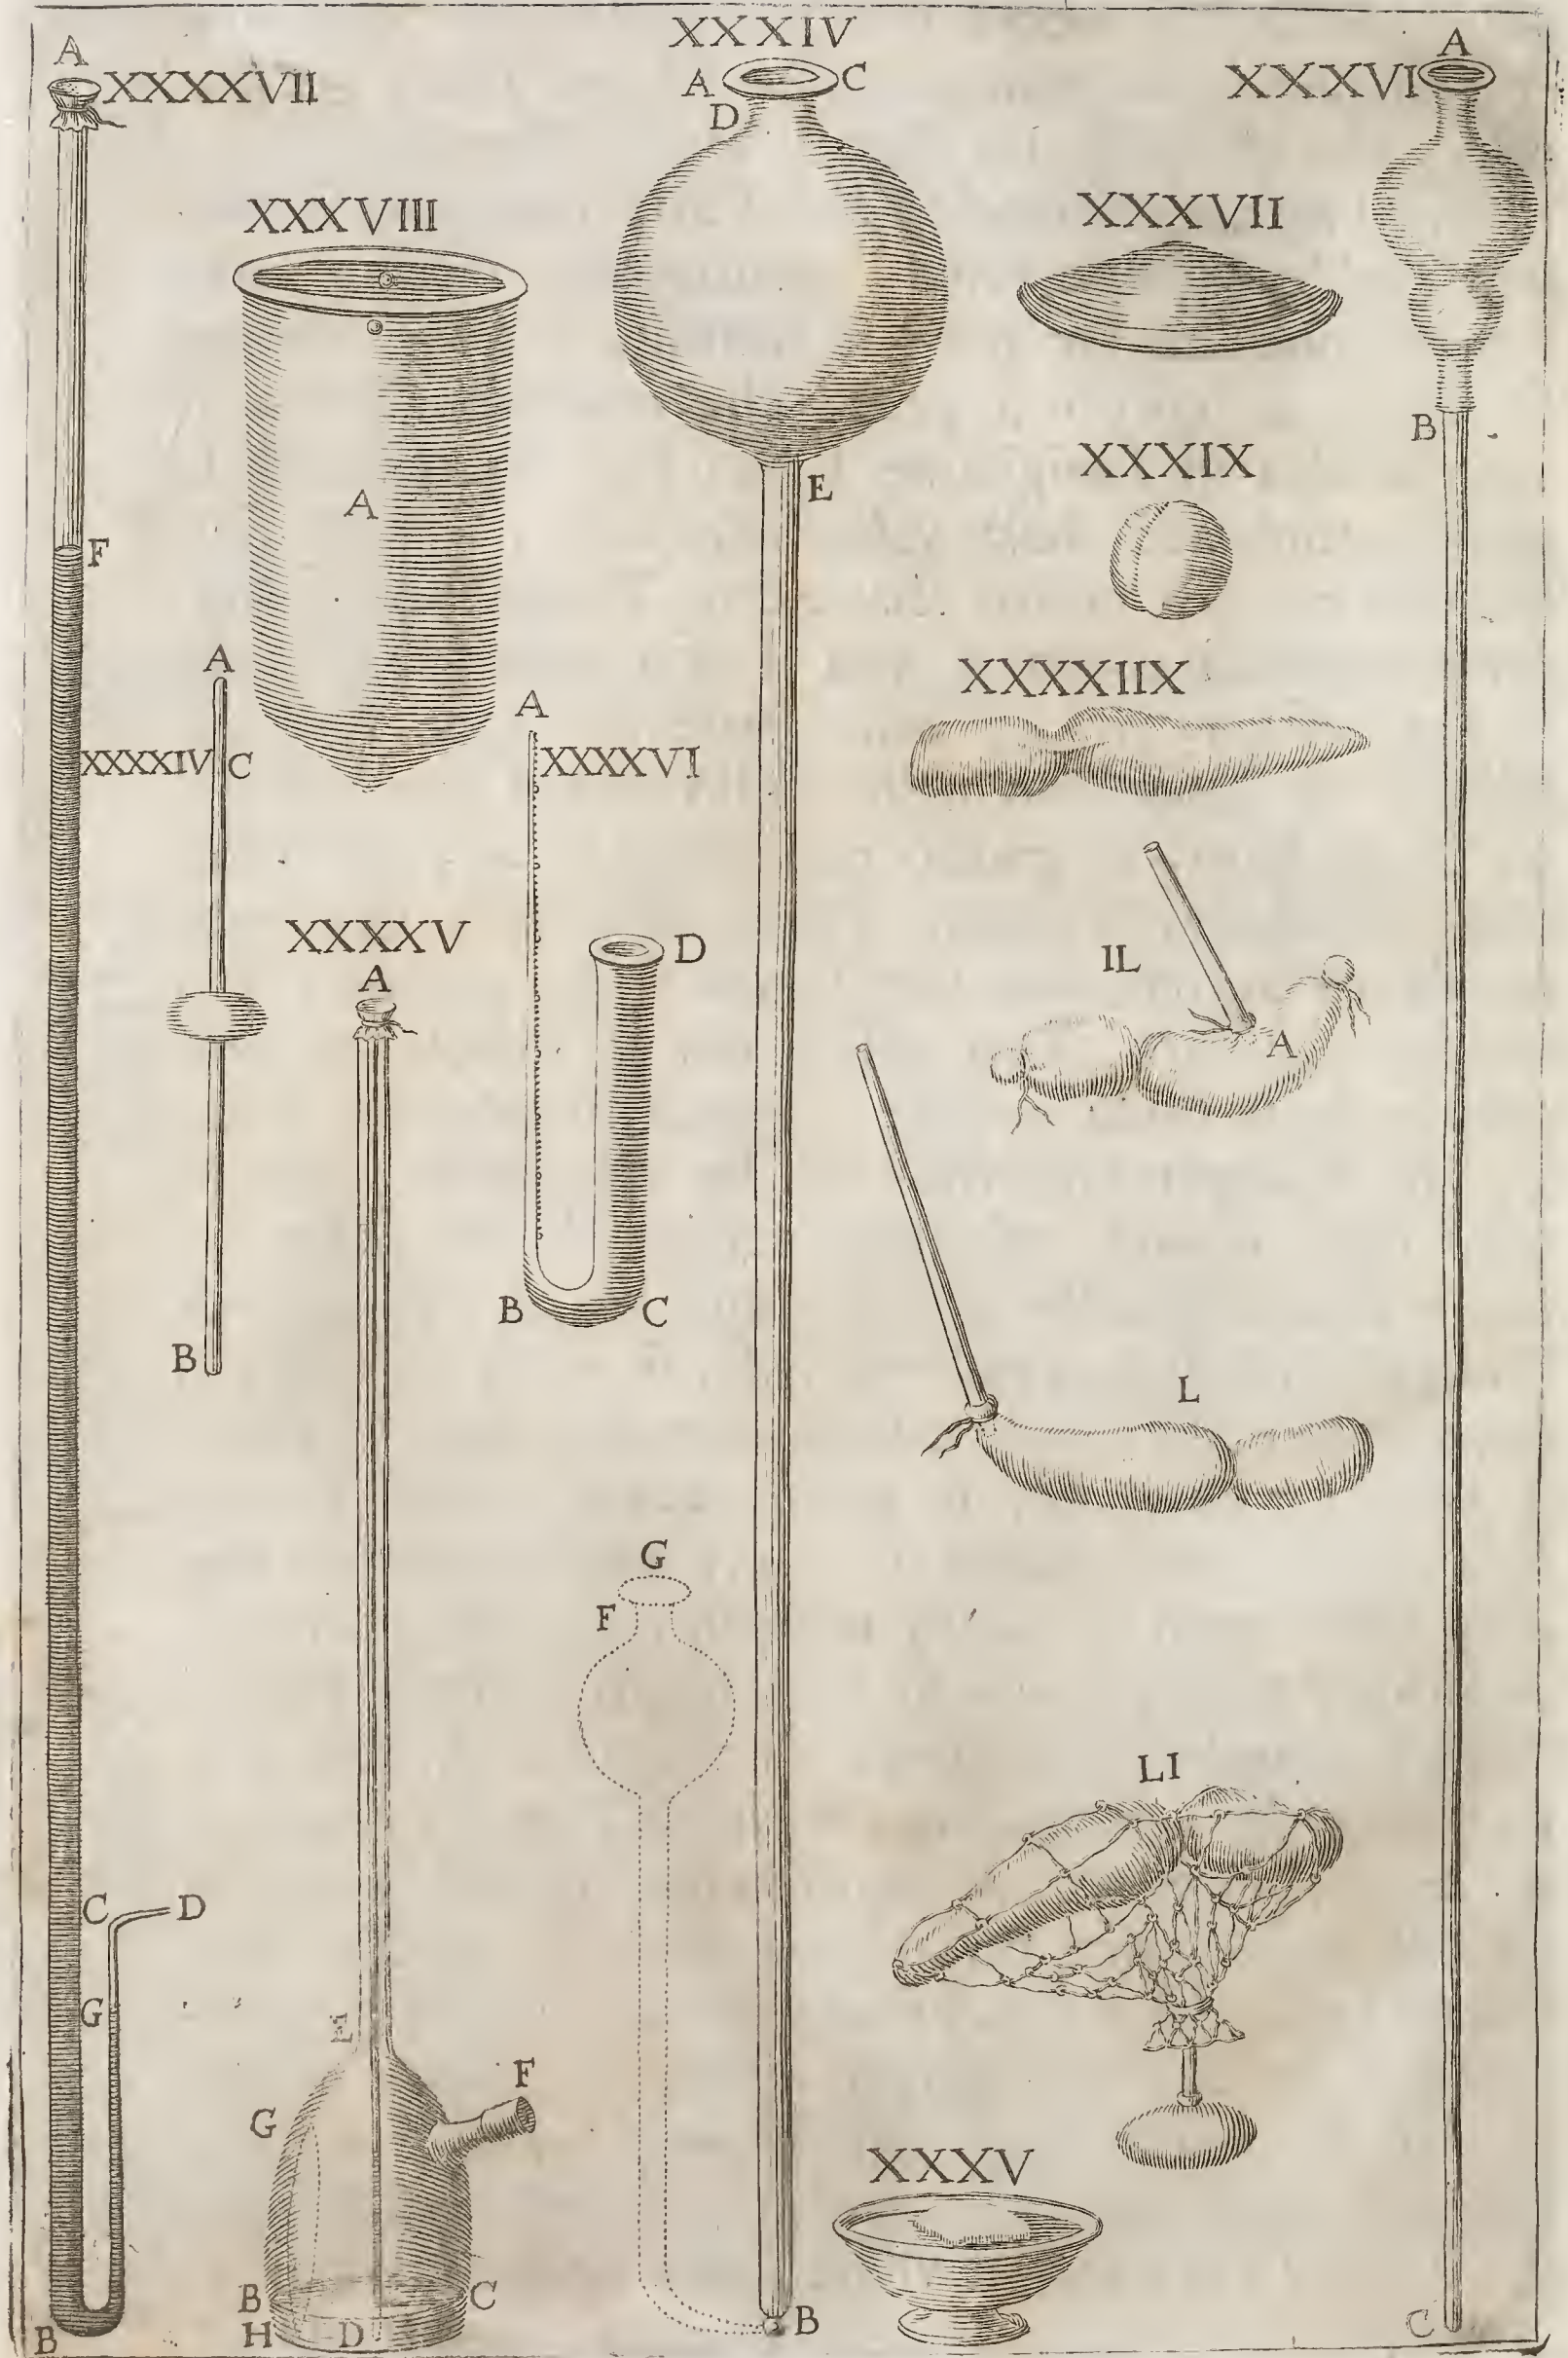 XXXXVII
A
F
C
D
G
B
XXXVIII
A
XXXXIV
A
C
B
XXXXV
A
E
F
G
B
C
H
D
XXXXVI
A
D
B
C
XXXIV
A
C
D
E
G
F
B
XXXVI
A
B
C
XXXVII
XXXIX
XXXXIIX
IL
A
L
LI
XXXV